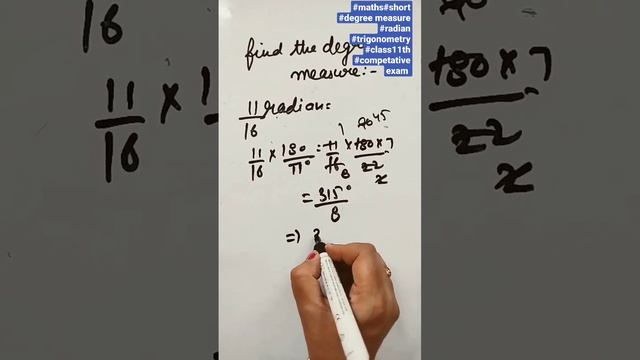 #maths#short
#degree measure
#radian
#trigonometry
#class11th
#competative
exam
find the degree
measure:-
11/16 radian=
11/16 × 180°/π = 11/16 × 180×7/22
= 315°/8
=)